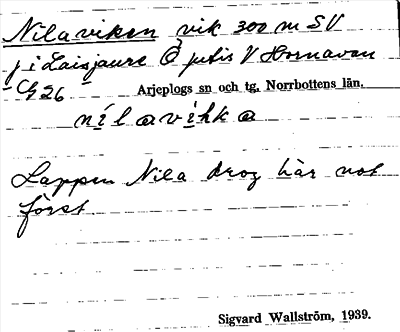 Nilaviken vik 300 m SV
j i Laisjaure Ö V Hornavan
C/g 26 Arjeplogs sn och tg, Norrbottens län.
nílavìhka
Lappen Nila drog här not
först
Sigvard Wallström, 1939.